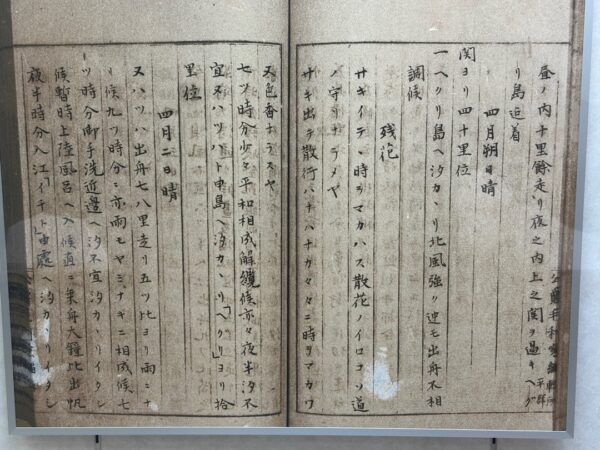 昼ノ内十里餘走リ夜之内上之関ヲ過キヘグ
リ島近着
四月朔日晴
関ヨリ四十里位
一ヘクリ島ヘ汐カヽリ北風強ク迚モ出舟不相
調候
残花
サキイテヽ時ヲマカハス散花ノイロコソ道
ノ守リナラメヤ
サキ出テ散行ハナハナカ々々ニ時ヲマカワ
又色香ホテスヤ
七ツ時分少々平和相成解纜候亦々夜半汐不
宜又ハツハト申島ヘ汐カヽリヘクリヨリ拾
里位
四月二日晴
又ハツハ出舟七八里走リ五ツ比ヨリ雨ニナ
リ候九ツ時分ニ亦雨モヤミナギニ相成候七
ツ時分御手洗近邊ヘ汐不宜汐カヽリイクシ
候暫時上陸風呂ヘ入候直ニ乗舟大鐘比出帆
夜半時分入江イチト申處ヘ汐カヽリイタシ